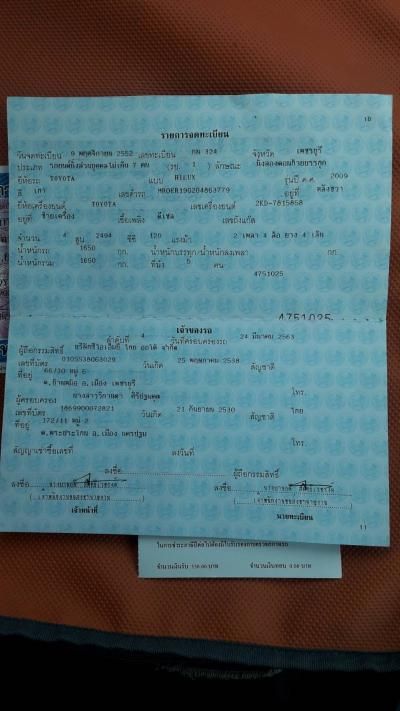 10
รายการจดทะเบียน
วันจดทะเบียน 9 พฤศจิกายน 2552 เลขทะเบียน กน 324 จังหวัด เพชรบุรี
ประเภท รถยนต์นั่งส่วนบุคคลไม่เกิน 7 คน (รย. 1 ) ลักษณะ นั่งสองตอนท้ายบรรทุก
ยี่ห้อรถ TOYOTA แบบ HILUX รุ่นปี ค.ศ. 2009
สี เทา เลขตัวรถ MR0ER19G204863779 อยู่ที่ คลังขวา
ยี่ห้อเครื่องยนต์ TOYOTA เลขเครื่องยนต์ 2KD-7815858
อยู่ที่ ซ้ายเครื่อง เชื้อเพลิง ดีเซล เลขถังแก๊ส
จำนวน 4 สูบ 2494 ซีซี 120 แรงม้า 2 เพลา 4 ล้อ ยาง 4 เส้น
น้ำหนักรถ 1650 กก. น้ำหนักบรรทุก/น้ำหนักลงเพลา กก.
น้ำหนักรวม 1650 กก. ที่นั่ง 5 คน
4751025
4751025
เจ้าของรถ
ลำดับที่ 4 วันที่ครอบครองรถ 24 มีนาคม 2563
ผู้ถือกรรมสิทธิ์ จำกัด
เลขที่บัตร 0105538063029 วันเกิด 25 พฤษภาคม 2538 สัญชาติ
ที่อยู่ 66/30 หมู่ 6
ต.บ้านหม้อ อ.เมือง เพชรบุรี โทร.
ผู้ครอบครอง นางสาววิภาดา
เลขที่บัตร 1869900072821 วันเกิด 21 กันยายน 2530 สัญชาติ ไทย
ที่อยู่ 172/11 หมู่ 2
ต.พระประโทน อ.เมือง นครปฐม โทร.
สัญญาเช่าซื้อเลขที่ ลงวันที่
ลงชื่อ ผู้ถือกรรมสิทธิ์
ลงชื่อ ลงชื่อ
เจ้าหน้าที่ นายทะเบียน
11
จำนวนเงินรับ บาท จำนวนเงินทอน 0.00 บาท